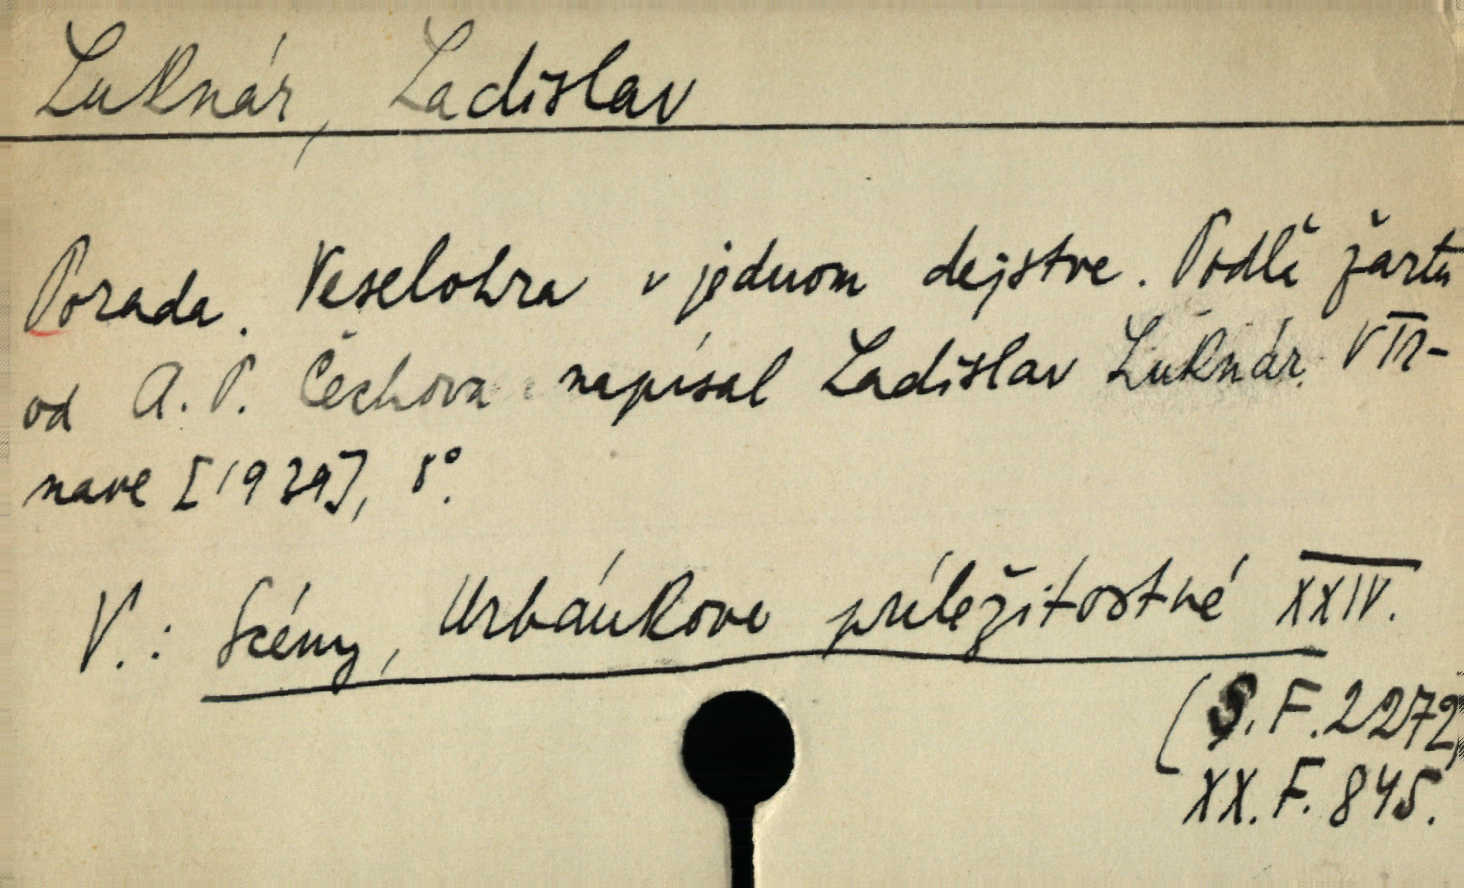 Luknár, Ladislav
Porada. Veselohra v jednom dejstve. Podľa žartu
od A. P. Čechova napísal Ladislav Luknár. V Tr-
nave [1929], 8°.
V.: Scény, Urbánkove príležitostné XXIV.
(S. F. 2272)
XX. F. 845.